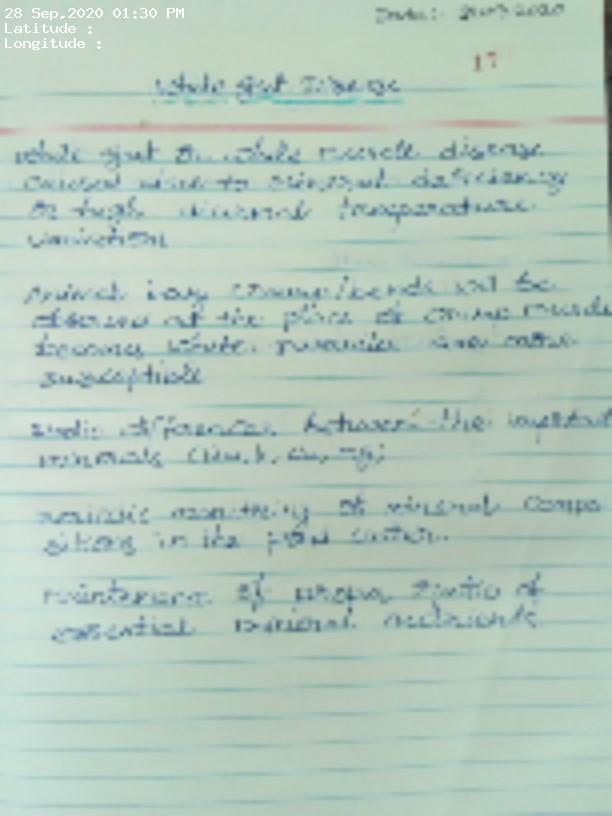 28 Sep,2020 01:30 PM
Latitude :
Longitude :
Date:- 2020
17
White gut Disease
White gut or white muscle disease
caused due to mineral deficiency
or high diurnal temperature
variation
Animal body cramp/bends will be
observed at the place of cramp muscle
become white. are more
susceptible
differences between the important
minerals
periodic monitoring of mineral compo
sitions in the pond water.
maintenance of proper ratio of
essential mineral nutrients